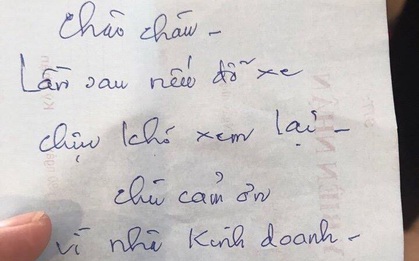 Chào cháu -
Lần sau nếu đỗ xe
chịu khó xem lại -
chú cảm ơn
vì nhà Kinh doanh -